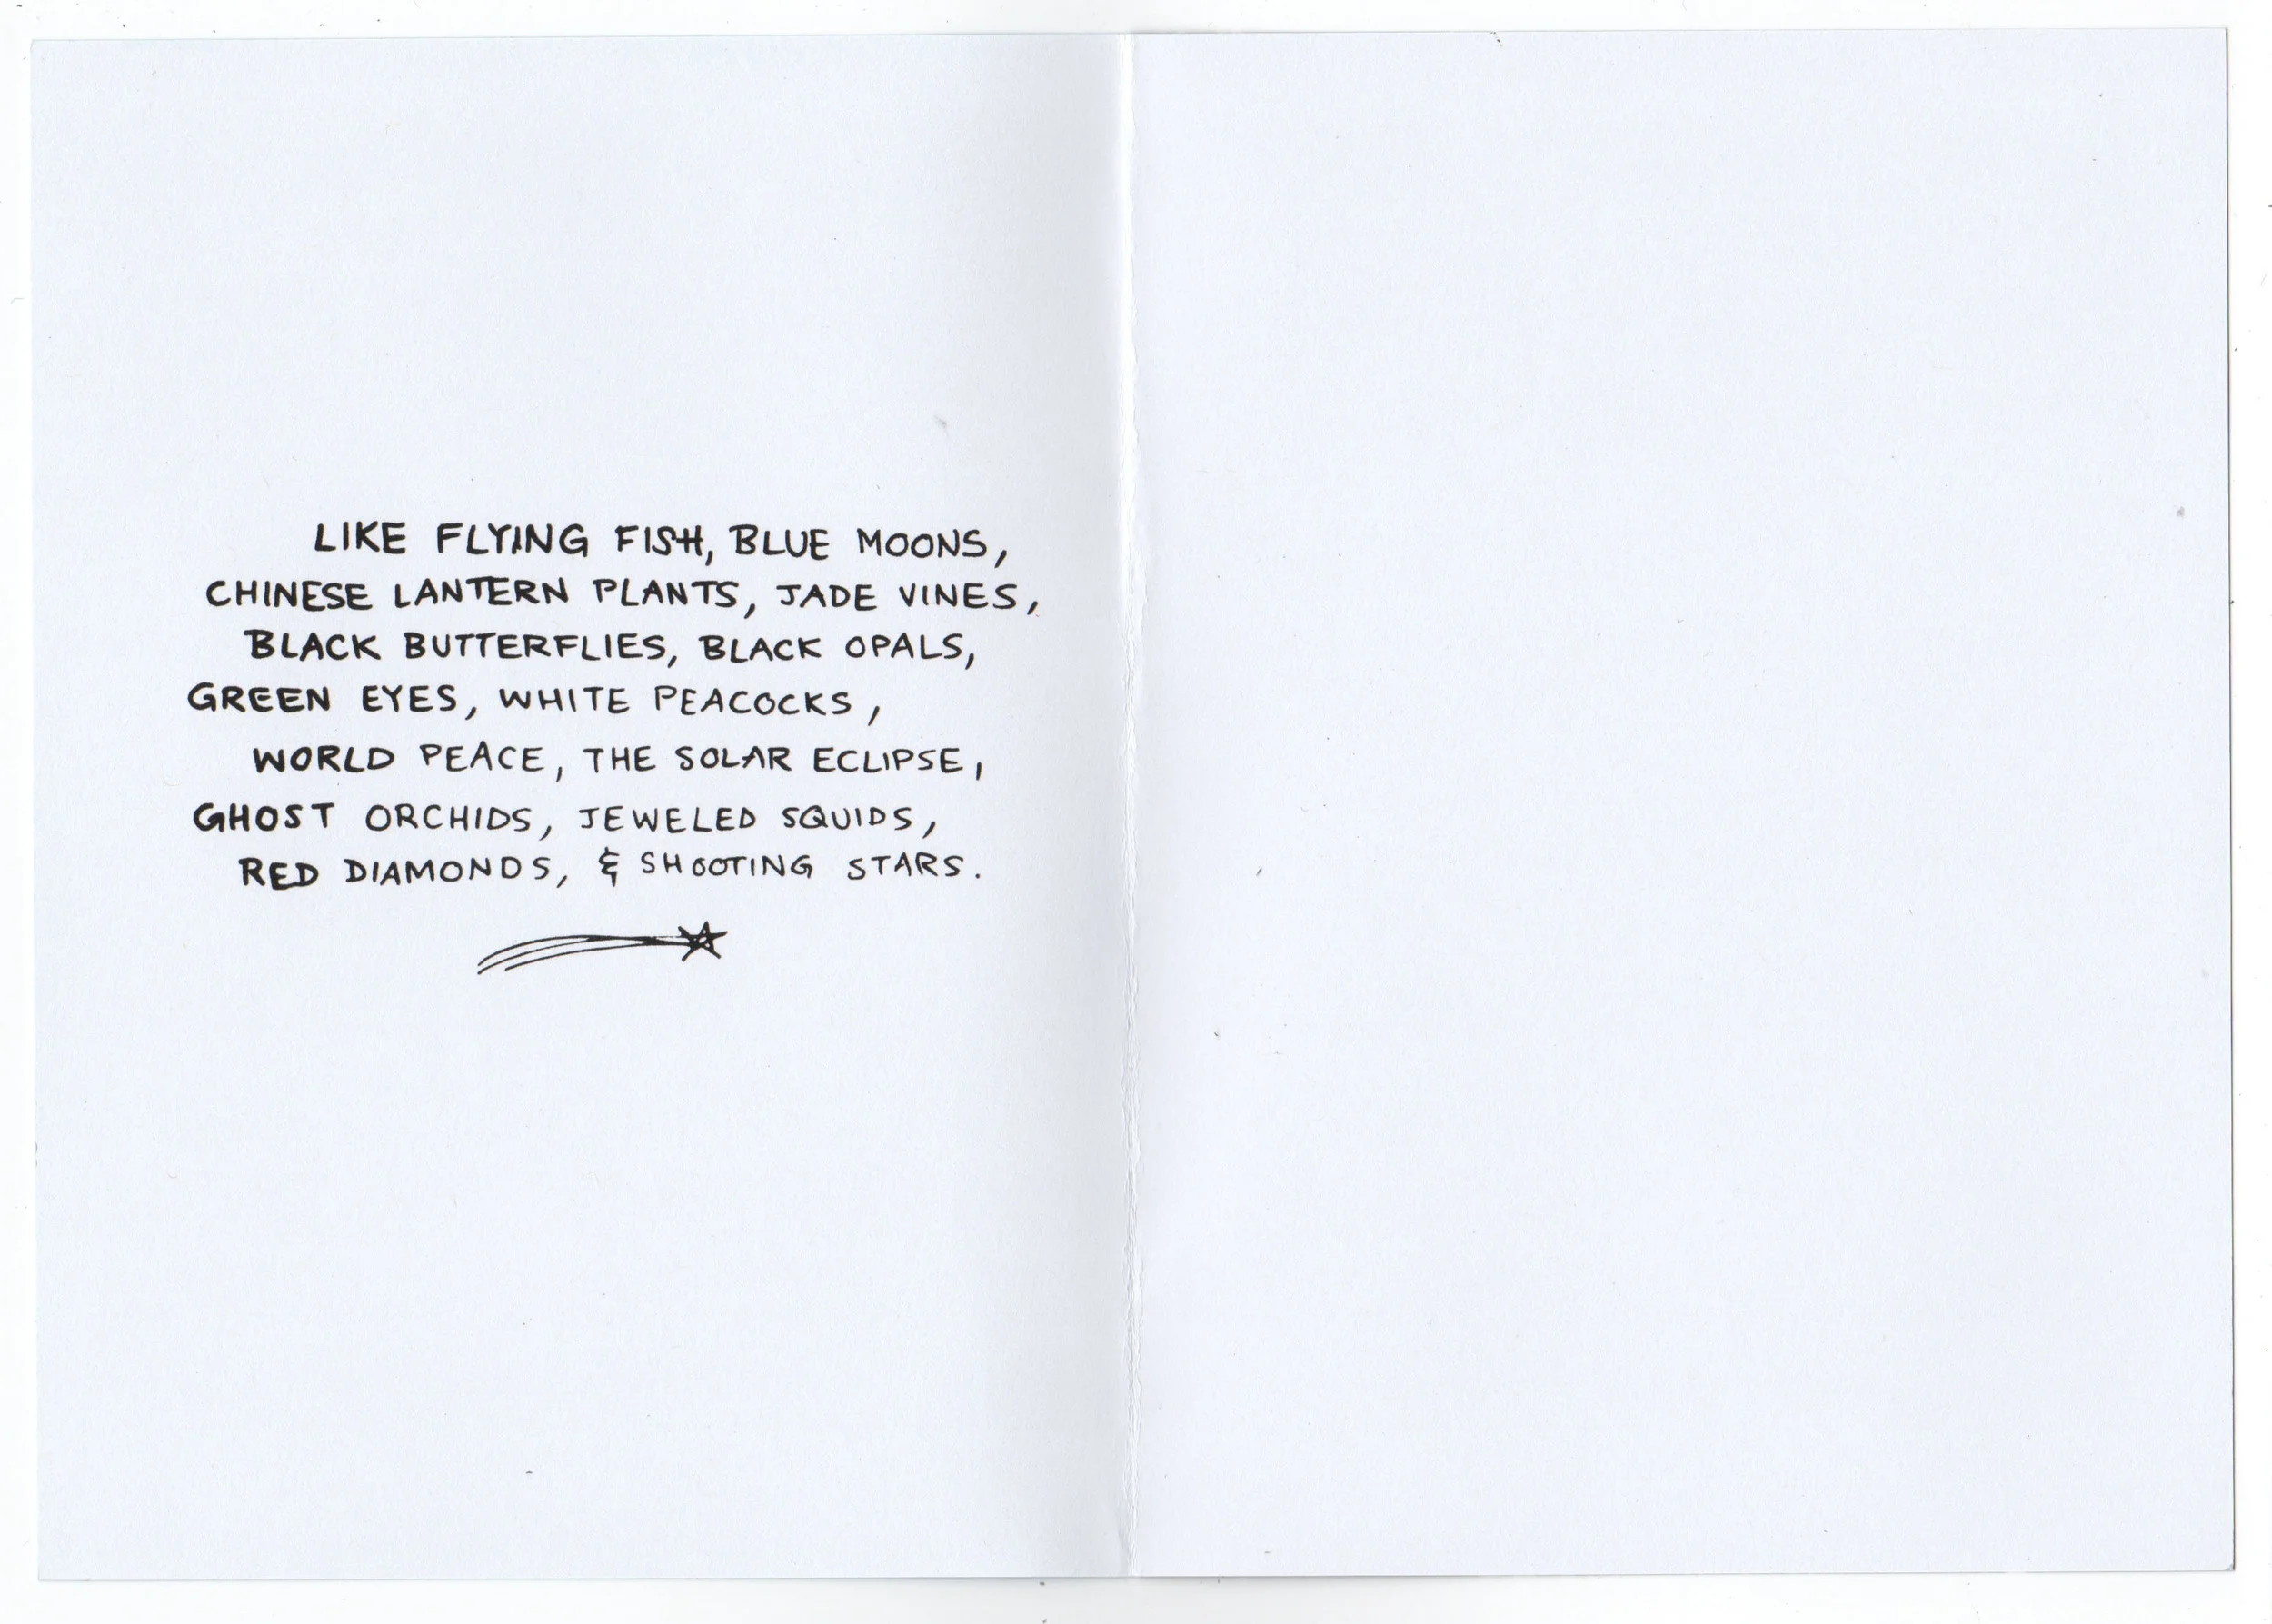 LIKE FLYING FISH, BLUE MOONS,
CHINESE LANTERN PLANTS, JADE VINES,
BLACK BUTTERFLIES, BLACK OPALS,
GREEN EYES, WHITE PEACOCKS,
WORLD PEACE, THE SOLAR ECLIPSE,
GHOST ORCHIDS, JEWELED SQUIDS,
RED DIAMONDS, & SHOOTING STARS.